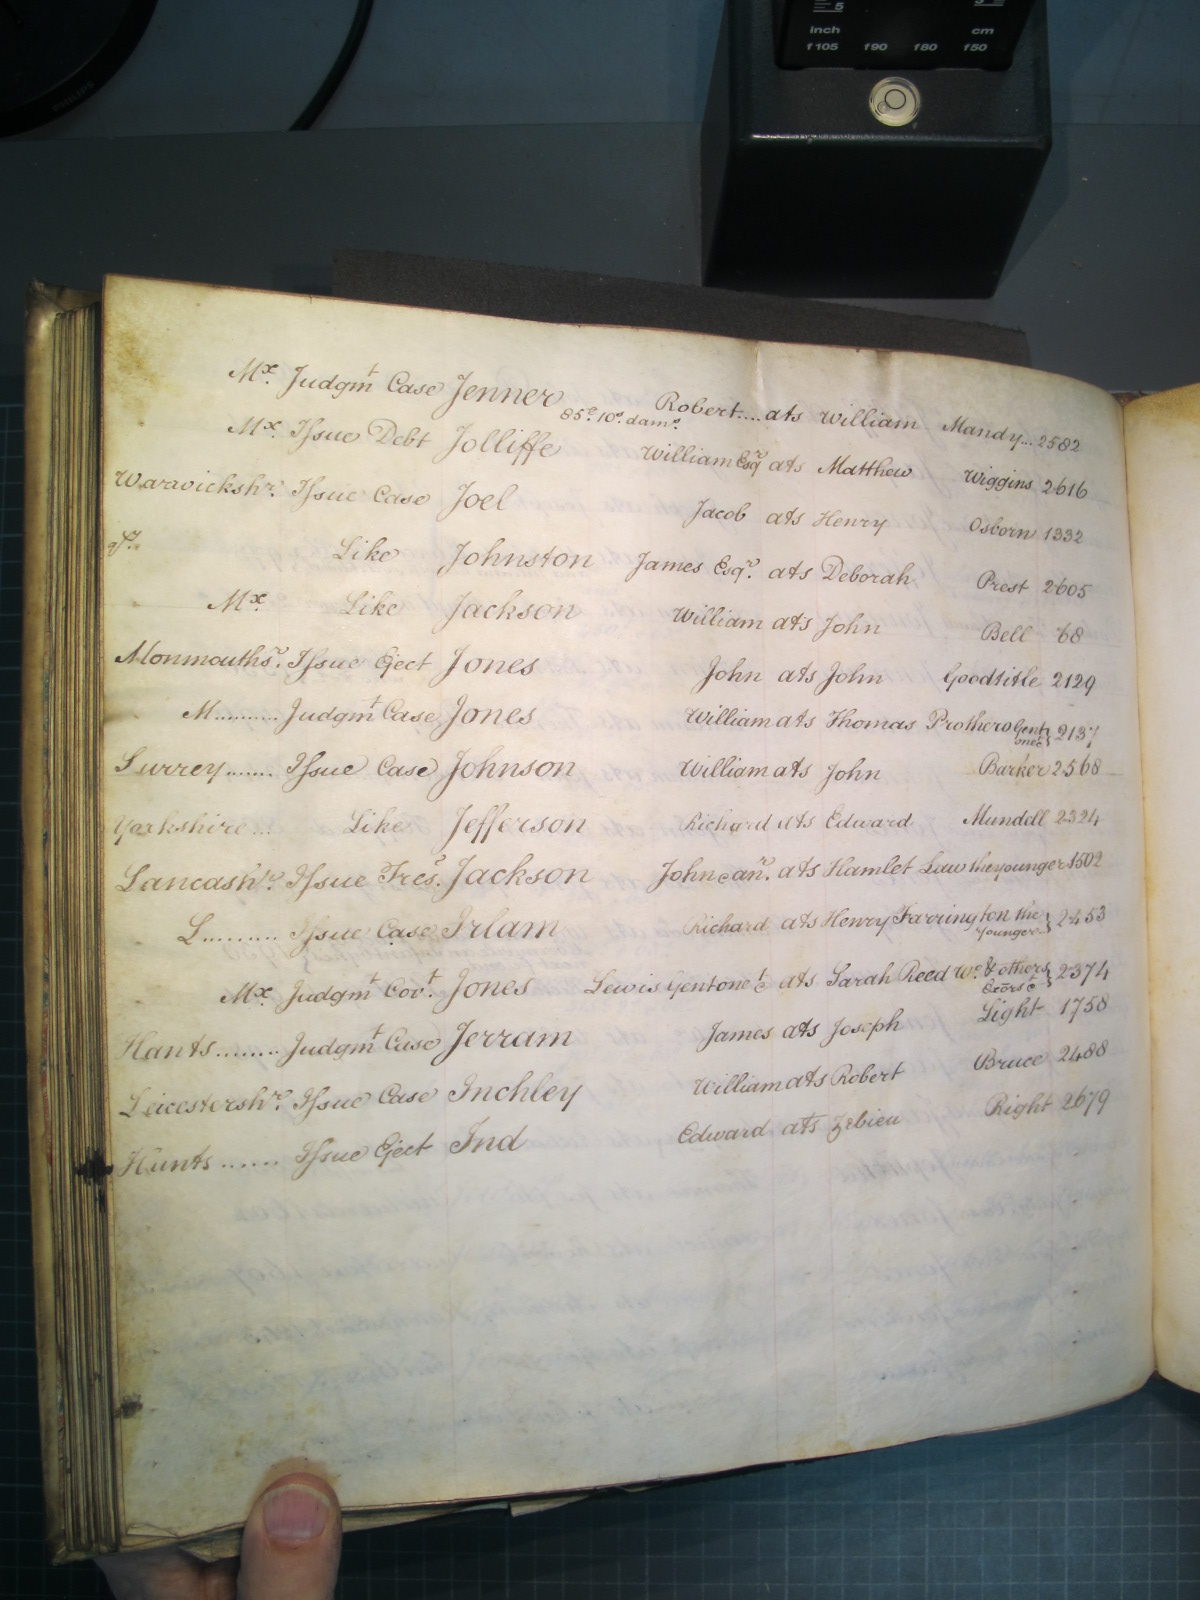 5
inch cm
f105 f90 f80 f50
PHILIPS
Mx. Judgmt Case Jenner Robert.... ats William Mandy... 2582
85£. 10s. dams.
Mx. Issue Debt Jolliffe William Esqr ats Matthew Wiggins 2616
Warwickshr. Issue Case Joel Jacob ats Henry Osborn 1332
Like Johnston James Esqr. ats Deborah Prest 2605
Mx. Like Jackson William ats John Bell 68
Monmouths. Issue Eject Jones John ats John Goodtitle 2129
M.......... Judgmt Case Jones William ats Thomas Prothero Gent one &c} 2137
Surrey....... Issue Case Johnson William ats John Barker 2568
Yorkshire... Like Jefferson Richard ats Edward Mundell 2324
Lancashr. Issue Tres. Jackson John &anr. ats Hamlet Law the younger 1502
L.......... Issue Case Irlam Richard ats Henry Farrington the younger..} 2453
Mx. Judgmt Covt. Jones Lewis Gent one &c ats Sarah Reed Wo. & others Exors &c} 2374
Hants........ Judgmt Case Jerram James ats Joseph Light 1758
Leicestershr. Issue Case Inchley William ats Robert Bruce 2488
Hunts...... Issue Eject Ind Edward ats Zebieu Right 2679